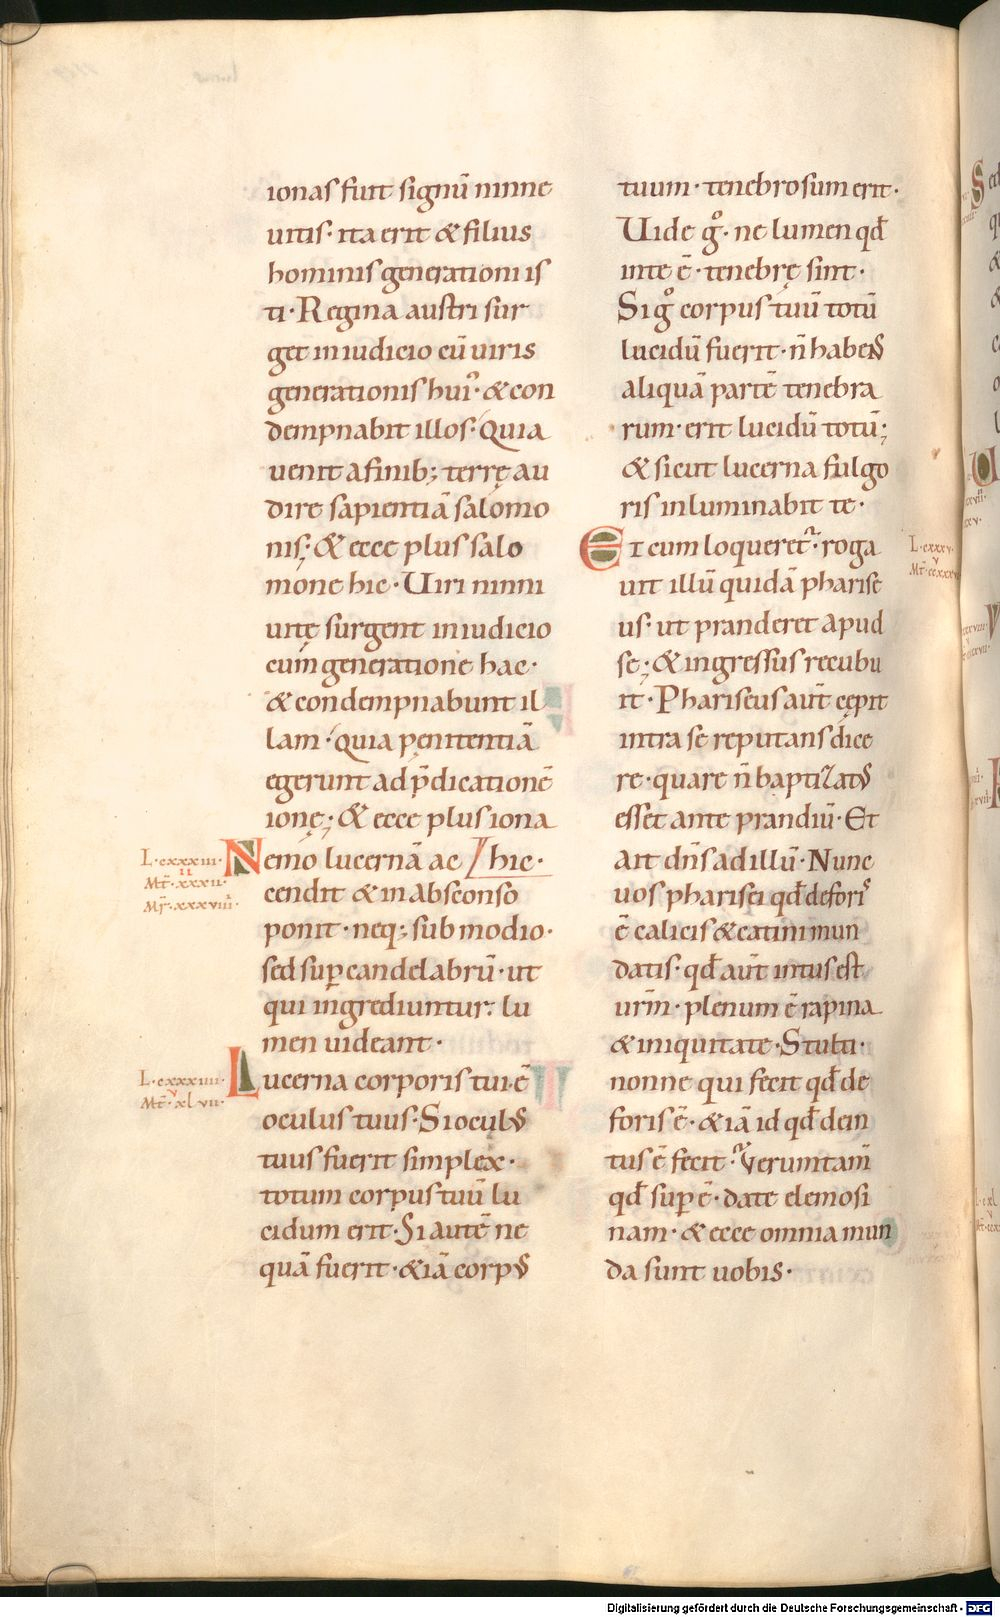 ionas fuit signū ninne
uitis· ita erit & filius
hominis generationi is
ti· Regina austri sur
get in iudicio cū uiris
generationis hui᾽· & con
dempnabit illos· Quia
uenit a finib; terrę au
dire sapientiā salomo
nis; & ecce plus salo
mone hic· Uiri nini
uitę surgent in iudicio
cum generatione hac·
& condempnabunt il
lam· quia penitentiā
egerunt ad p̄dicationē
ionę; & ecce plus iona
hic·
L·cxxxiii·
Mt̄·xxxii·
Mr̄·xxxviii·
Nemo lucernā ac
cendit & in absconso
ponit· neq; sub modio·
sed sup candelabrū· ut
qui ingrediuntur· lu
men uideant·
L·cxxxiiii·
Mt̄·xlvii·
Lucerna corporis tui ē
oculus tuus· Si ocul᾽
tuus fuerit simplex·
totum corpus tuū lu
cidum erit· Si autē ne
quā fuerit· & iā corp᾽
tuum· tenebrosum erit·
Uide g̊· ne lumen qđ
in te ē· tenebrę sint·
Si g̊ corpus tuū totū
lucidū fuerit· n̄ habens
aliquā partē tenebra
rum· erit lucidū totū;
& sicut lucerna fulgo
ris inluminabit te·
L·cxxxv·
Et cum loqueret᾽· roga
uit illū quidā pharise
us· ut pranderet apud
se; & ingressus recubu
it· Phariseus aut̄ cępit
intra se reputans dice
re· quare n̄ baptizat᾽
esset ante prandiū· Et
ait dn̄s ad illū· Nunc
uos pharisei qđ de foris
ē calicis & catini mun
datis· qđ aut̄ intus est
ur̄m· plenum ē rapina
& iniquitate· Stulti·
nonne qui fecit qđ de
foris ē· & iā id qđ dein
tus ē fecit· Verumtam̄
qđ sup ē· date elemosi
nam· & ecce omnia mun
da sunt uobis·
Digitalisierung gefördert durch die Deutsche Forschungsgemeinschaft - DFG